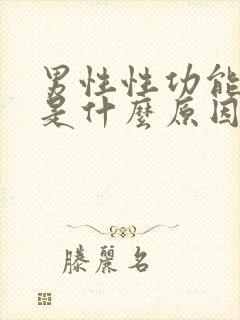 男性性功能
是什麼原因
滕麗名